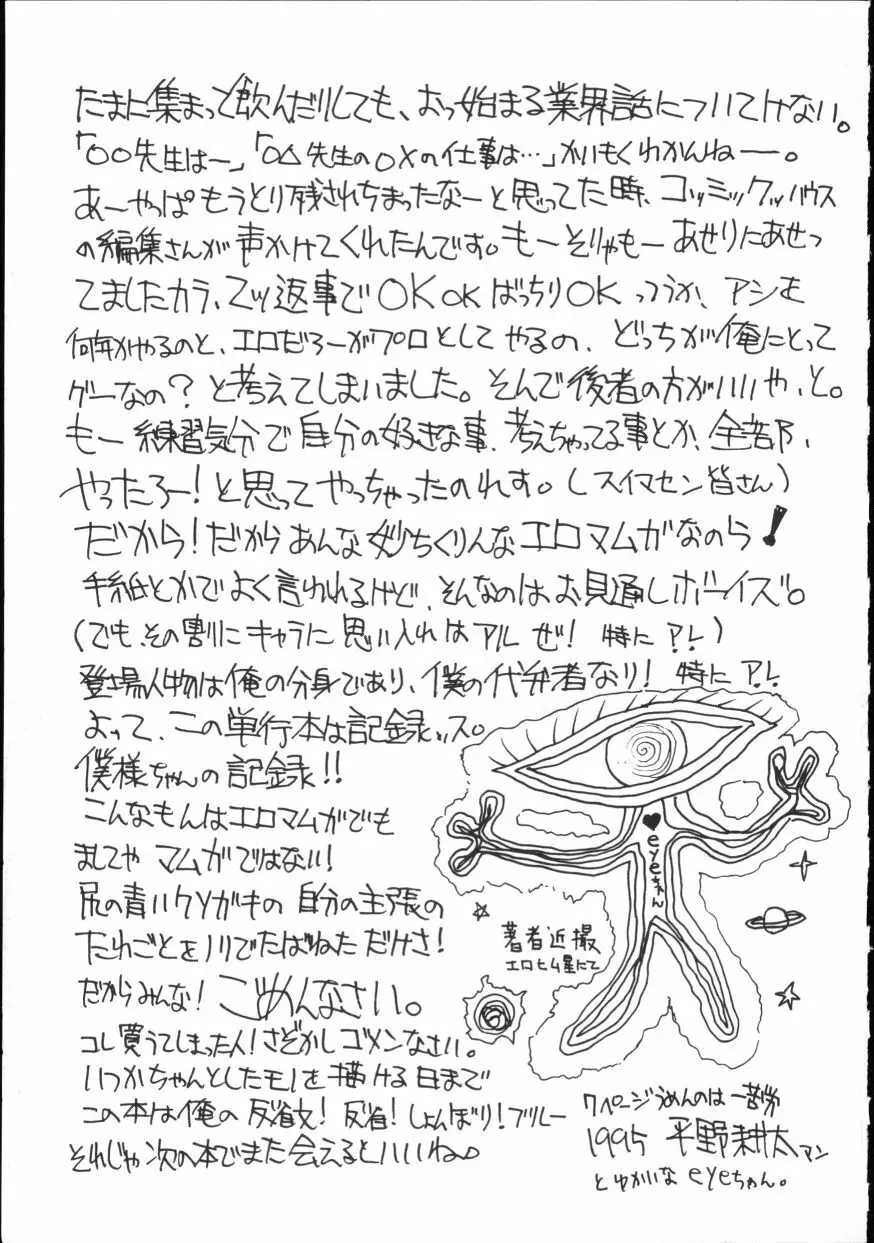 たまに集まって飲んだりしても、おっ始まる業界話についてけない。
「○○先生はー」「○△先生の○×の仕事は…」かいもくわかんねーー。
あーやっぱもうとり残されちまったなーと思ってた時、コッミックッハウス
の編集さんが声かけてくれたんです。もーそりゃもーあせりにあせっ
てましたカラ、二ツ返事でOK OK ばっちりOK っつうか、アシを
何年かやるのと、エロだろーがプロとしてやるの、どっちが俺にとって
ゲーなの？と考えてしまいました。そんで後者の方がいいや、と。
もー練習気分で自分の好きな事、考えちゃってる事とか、全部、
やったろー！と思ってやっちゃったのれす。（スイマセン皆さん）
だから！だからあんな妙ちくりんなエロマムガなのら！
手紙とかでよく言われるけど、そんなのはお見通しボーイズ。
（でも、その割にキャラに思い入れはアルぜ！特にアレ）
登場人物は俺の分身であり、僕の代弁者なり！特にアレ
よって、この単行本は記録ッス。
僕様ちゃんの記録!!
こんなもんはエロマムガでも
ましてやマムガではない！
尻の青いクソガキの自分の主張の
たれごとをノリでたばねただけさ！
だからみんな！ごめんなさい。
コレ買うてしまった人！さぞかしゴメンなさい。
いつかちゃんとしたモノを描ける日まで
この本は俺の反省文！反省！しょんぼり！ブルー
それじゃ次の本でまた会えるといいね。
♥eyeちゃん
著者近撮
エロヒム星にて
7ページうめんのは一苦労
1995 平野耕太アン
とゆかいなeyeちゃん。